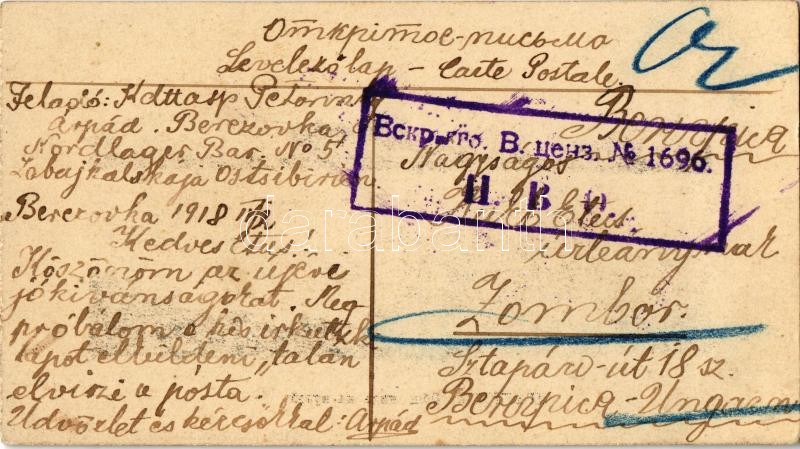 Откріточ-письмо
Levelező lap - Carte Postale
Feladó: Kdttasp Petrovits
Árpád. Berezovka
Nordlager Bar. No 5
Zabajkalskaja Ostsibirien
Berezovka 1918 II/2
Kedves Etus!
Köszönöm az újévi
jókivánságokat. Meg
próbálom e kis irkutszk
lapot elküldeni, "talán
elviszi a pósta.
Üdvözlet és kézcsókkal: Árpád
Вскрыто. В. ценз. № 1696.
П. В.
Венгрія
Nagyságos
Etecs
úrleánynak
Zombor.
Sztapári-út 18 sz.
Венгрія-Ungarn
darabanth